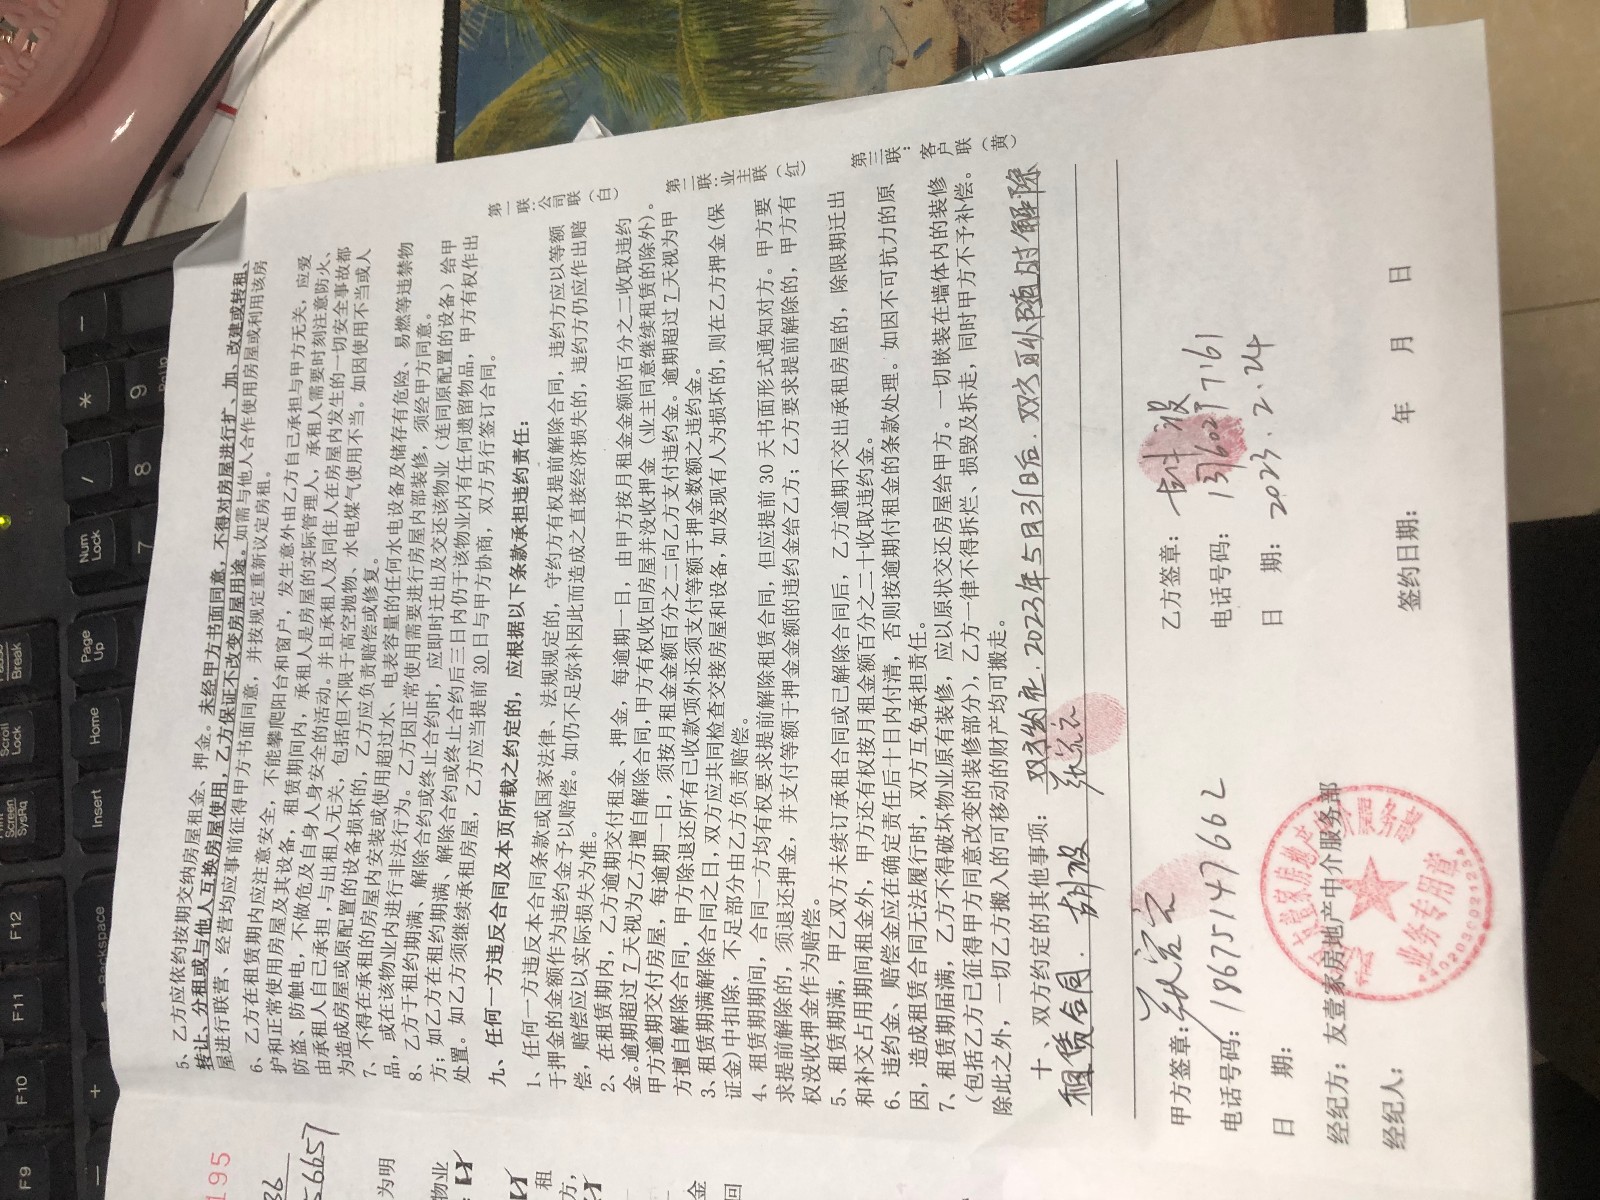 5、乙方应依约按期交纳房屋租金、押金。未经甲方书面同意，不得对房屋进行扩、加、改建或转租、
转让、分租或与他人互换房屋使用，乙方保证不改变房屋用途。如需与他人合作使用房屋或利用该房
屋进行联营、经营均应事前征得甲方书面同意，并按规定重新议定房租。
6、乙方在租赁期内应注意安全，不能攀爬阳台和窗户，发生意外由乙方自己承担与甲方无关，应爱
护和正常使用房屋及其设备，租赁期间内，承租人是房屋的实际管理人，承租人需要时刻注意防火、
防盗、防触电，不做危及自身人身安全的活动。并且承租人及同住人在房屋内发生的一切安全事故都
由承租人自己承担，与出租人无关，包括但不限于高空抛物、水电煤气使用不当。如因使用不当或人
为造成房屋或原配置的设备损坏的，乙方应负责赔偿或修复。
7、不得在承租的房屋内安装或使用超过水、电表容量的任何水电设备及储存有危险、易燃等违禁物
品，或在该物业内进行非法行为。乙方因正常使用需要进行房屋内部装修，须经甲方同意。
8、乙方于租约期满、解除合约或终止合约时，应即时迁出及交还该物业（连同原配置的设备）给甲
方；如乙方在租约期满、解除合约或终止合约后三日内仍于该物业内有任何遗留物品，甲方有权作出
处置。如乙方须继续承租房屋，乙方应当提前30日与甲方协商，双方另行签订合同。
九、任何一方违反合同及本页所载之约定的，应根据以下条款承担违约责任：
1、任何一方违反本合同条款或国家法律、法规规定的，守约方有权提前解除合同，违约方应以等额
于押金的金额作为违约金予以赔偿。如仍不足弥补因此而造成之直接经济损失的，违约方仍应作出赔
偿，赔偿应以实际损失为准。
2、在租赁期内，乙方逾期交付租金、押金，每逾期一日，由甲方按月租金金额的百分之二收取违约
金。逾期超过7天视为乙方擅自解除合同，甲方有权收回房屋并没收押金（业主同意继续租赁的除外）。
甲方逾期交付房屋，每逾期一日，须按月租金金额百分之二向乙方支付违约金。逾期超过7天视为甲
方擅自解除合同，甲方除退还所有已收款项外还须支付等额于押金数额之违约金。
3、租赁期满解除合同之日，双方应共同检查交接房屋和设备，如发现有人为损坏的，则在乙方押金（保
证金）中扣除，不足部分由乙方负责赔偿。
4、租赁期期间，合同一方均有权要求提前解除租赁合同，但应提前30天书面形式通知对方。甲方要
求提前解除的，须退还押金，并支付等额于押金金额的违约金给乙方；乙方要求提前解除的，甲方有
权没收押金作为赔偿。
5、租赁期满，甲乙双方未续订承租合同或已解除合同后，乙方逾期不交出承租房屋的，除限期迁出
和补交占用期间租金外，甲方还有权按月租金额百分之二十收取违约金。
6、违约金、赔偿金应在确定责任后十日内付清，否则按逾期付租金的条款处理。如因不可抗力的原
因，造成租赁合同无法履行时，双方互免承担责任。
7、租赁期届满，乙方不得破坏物业原有装修，应以原状交还房屋给甲方。一切嵌装在墙体内的装修
（包括乙方已征得甲方同意改变的装修部分），乙方一律不得拆烂、损毁及拆走，同时甲方不予补偿。
除此之外，一切乙方搬入的可移动的财产均可搬走。
十、双方约定的其他事项：双方约定.2023年5月31日后.双方可以随时解除
租赁合同.
第一联：公司联（白）
第二联：业主联（红）
第三联：客户联（黄）
甲方签章：
电话号码：18675147662
日 期：
乙方签章：
电话号码：13760277161
日 期：2023.2.24
经纪方：友壹家房地产中介服务部
经纪人：
签约日期： 年 月 日
业务专用章
195
为明
物业
租
方，
金
回
F9
F10
F11
F12
Backspace
Insert
Home
Page
Up
Num
Lock
/
*
7
8
9
Scroll
Lock
Break
Screen
SysRq